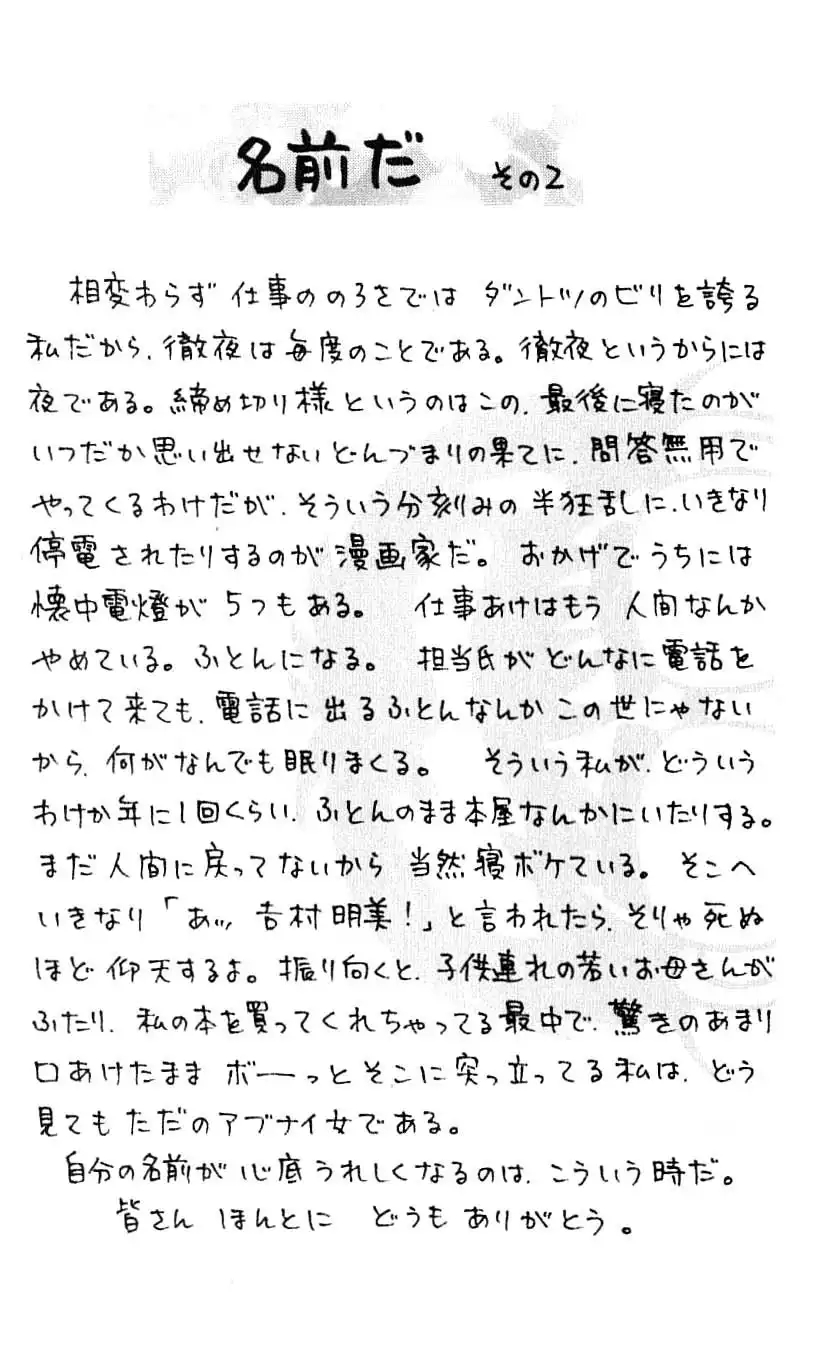 名前だ その2
相変わらず 仕事ののろさでは ダントツのビリを誇る
私だから、徹夜は毎度のことである。徹夜というからには
夜である。締め切り様というのはこの、最後に寝たのが
いつだか思い出せないどんづまりの果てに、問答無用で
やってくるわけだが、そういう分刻みの半狂乱に、いきなり
停電されたりするのが漫画家だ。おかげでうちには
懐中電燈が5つもある。 仕事あけはもう 人間なんか
やめている。ふとんになる。 担当氏がどんなに電話を
かけて来ても、電話に出るふとんなんかこの世にゃない
から、何がなんでも眠りまくる。 そういう私が、どういう
わけか年に1回くらい、ふとんのまま本屋なんかにいたりする。
まだ人間に戻ってないから 当然寝ボケている。そこへ
いきなり「あッ、吉村明美!」と言われたら、そりゃ死ぬ
ほど仰天するよ。振り向くと、子供連れの若いお母さんが
ふたり、私の本を買ってくれちゃってる最中で、驚きのあまり
口あけたまま ボーーっとそこに突っ立ってる私は、どう
見てもただのアブナイ女である。
自分の名前が心底うれしくなるのは、こういう時だ。
皆さん ほんとに どうもありがとう。